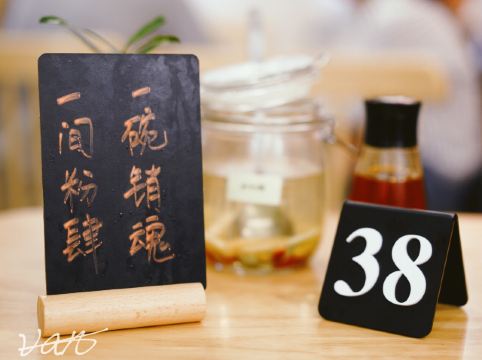 一碗销魂
一间粉肆
38
van